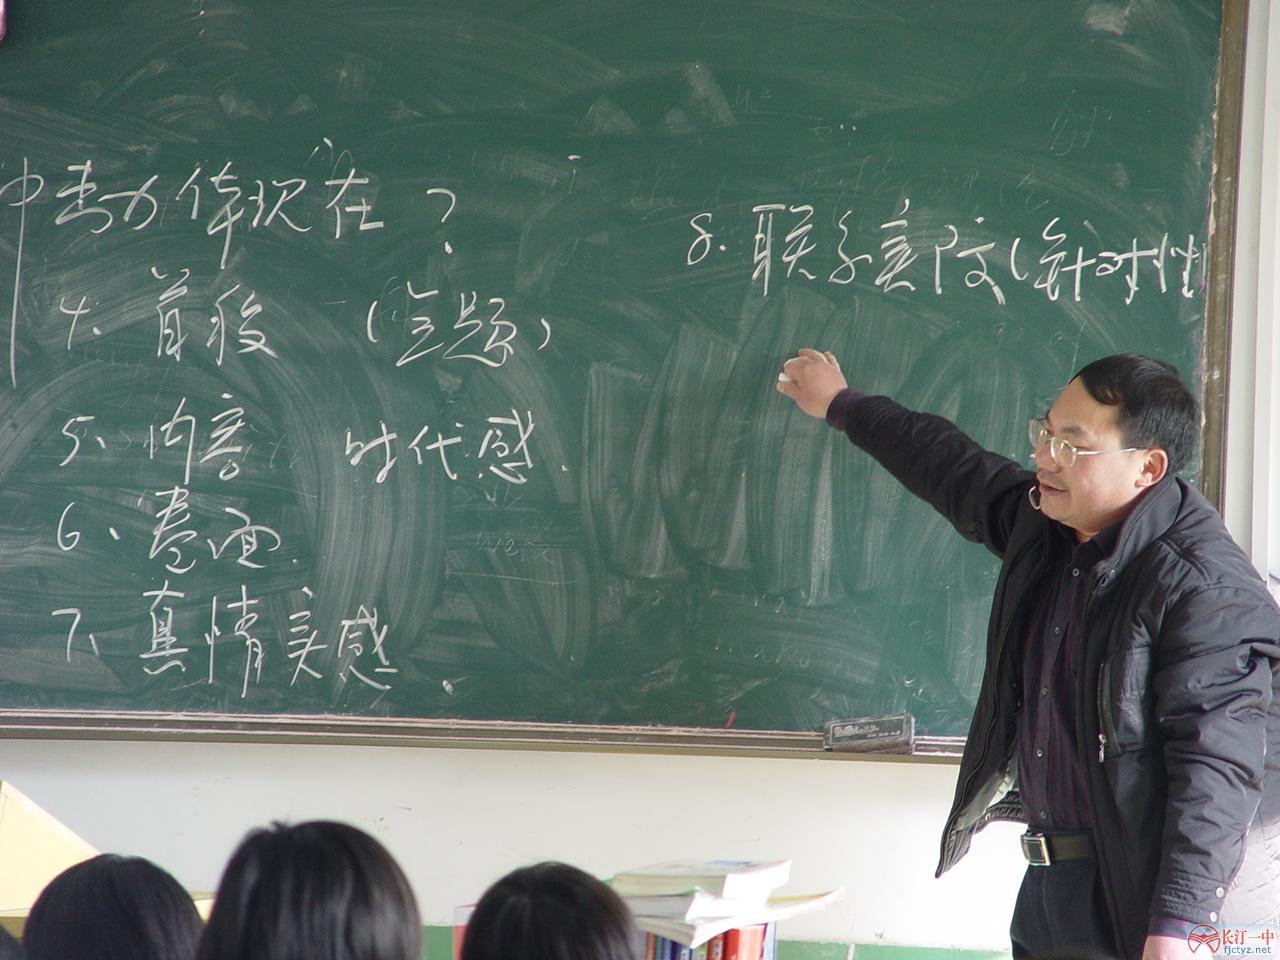 中去劲体现在？
4、首段 （主题）
5、内容 时代感.
6、卷面.
7、真情实感.
8.联系实际（针对性
长汀一中
fjctyz.net